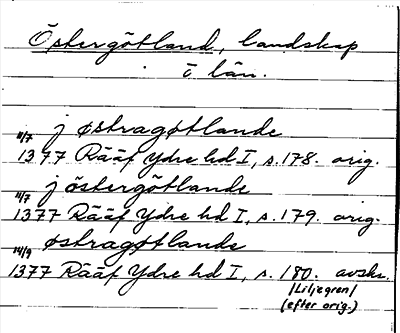 Östergötland, landskap
i län.
11/7 j østragøtlande
1377 Rääf Ydre hd I, s. 178. orig.
11/7 j östergötlande
1377 Rääf Ydre hd I, s. 179. orig.
14/9 østragøtlande
1377 Rääf Ydre hd I, s. 180. avskr.
/Liljegren/
(efter orig.)